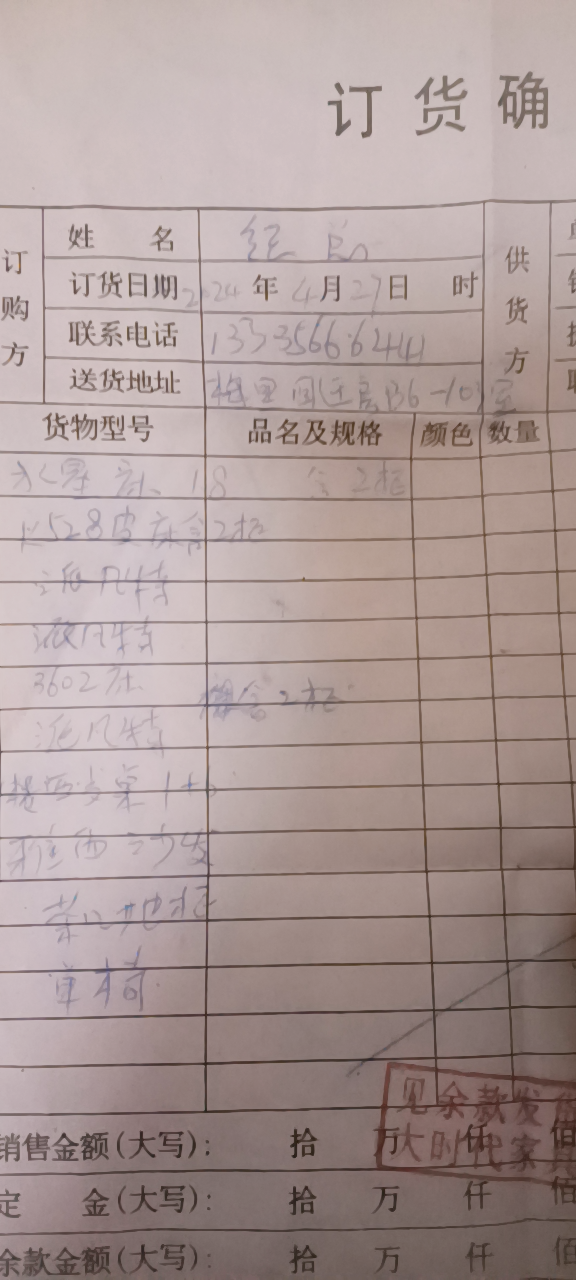 订货确
订购方
姓 名
供货方
订货日期 2024 年 4月27日 时
联系电话 13335666244
送货地址 梅里 36-103室
货物型号 品名及规格 颜色 数量
床 18 含2柜
528皮床含2柜
派凡特
派凡特
3602床 含2柜
派凡特
桌 1+6
沙发
茶几地柜
单椅
见余款发
大时代家具
销售金额(大写): 拾 万 仟 佰
定 金(大写): 拾 万 仟 佰
余款金额(大写): 拾 万 仟 佰